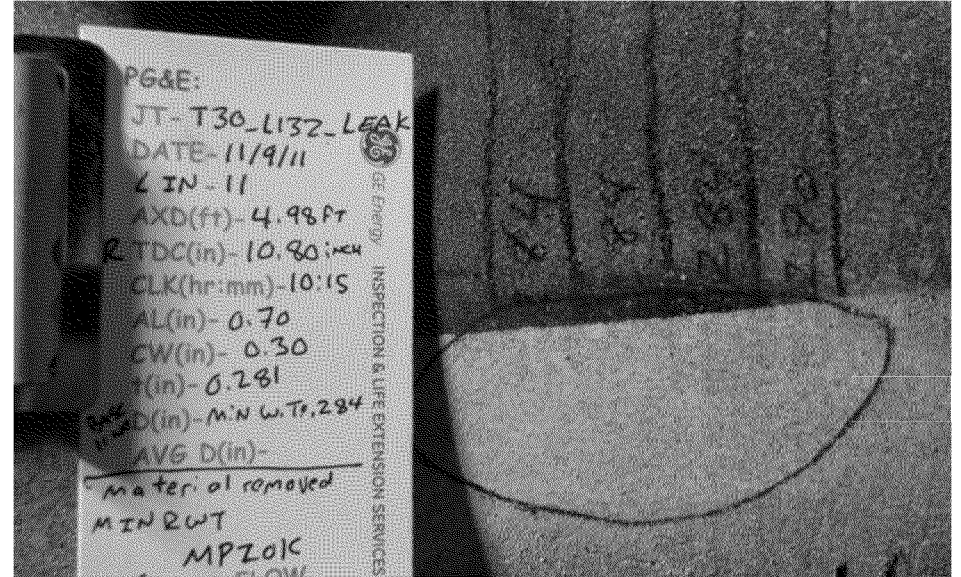 PG&E:
JT- T30_L132_LEAK
DATE- 11/9/11
L IN - 11
AXD(ft)- 4.98 FT
R TDC(in)- 10.80 inch
CLK(hr:mm)- 10:15
AL(in)- 0.70
CW(in)- 0.30
t(in)- 0.281
D(in)- MIN W.T. .284
AVG D(in)-
material removed
MIN RWT
FLOW
GE Energy
INSPECTION & LIFE EXTENSION SERVICES